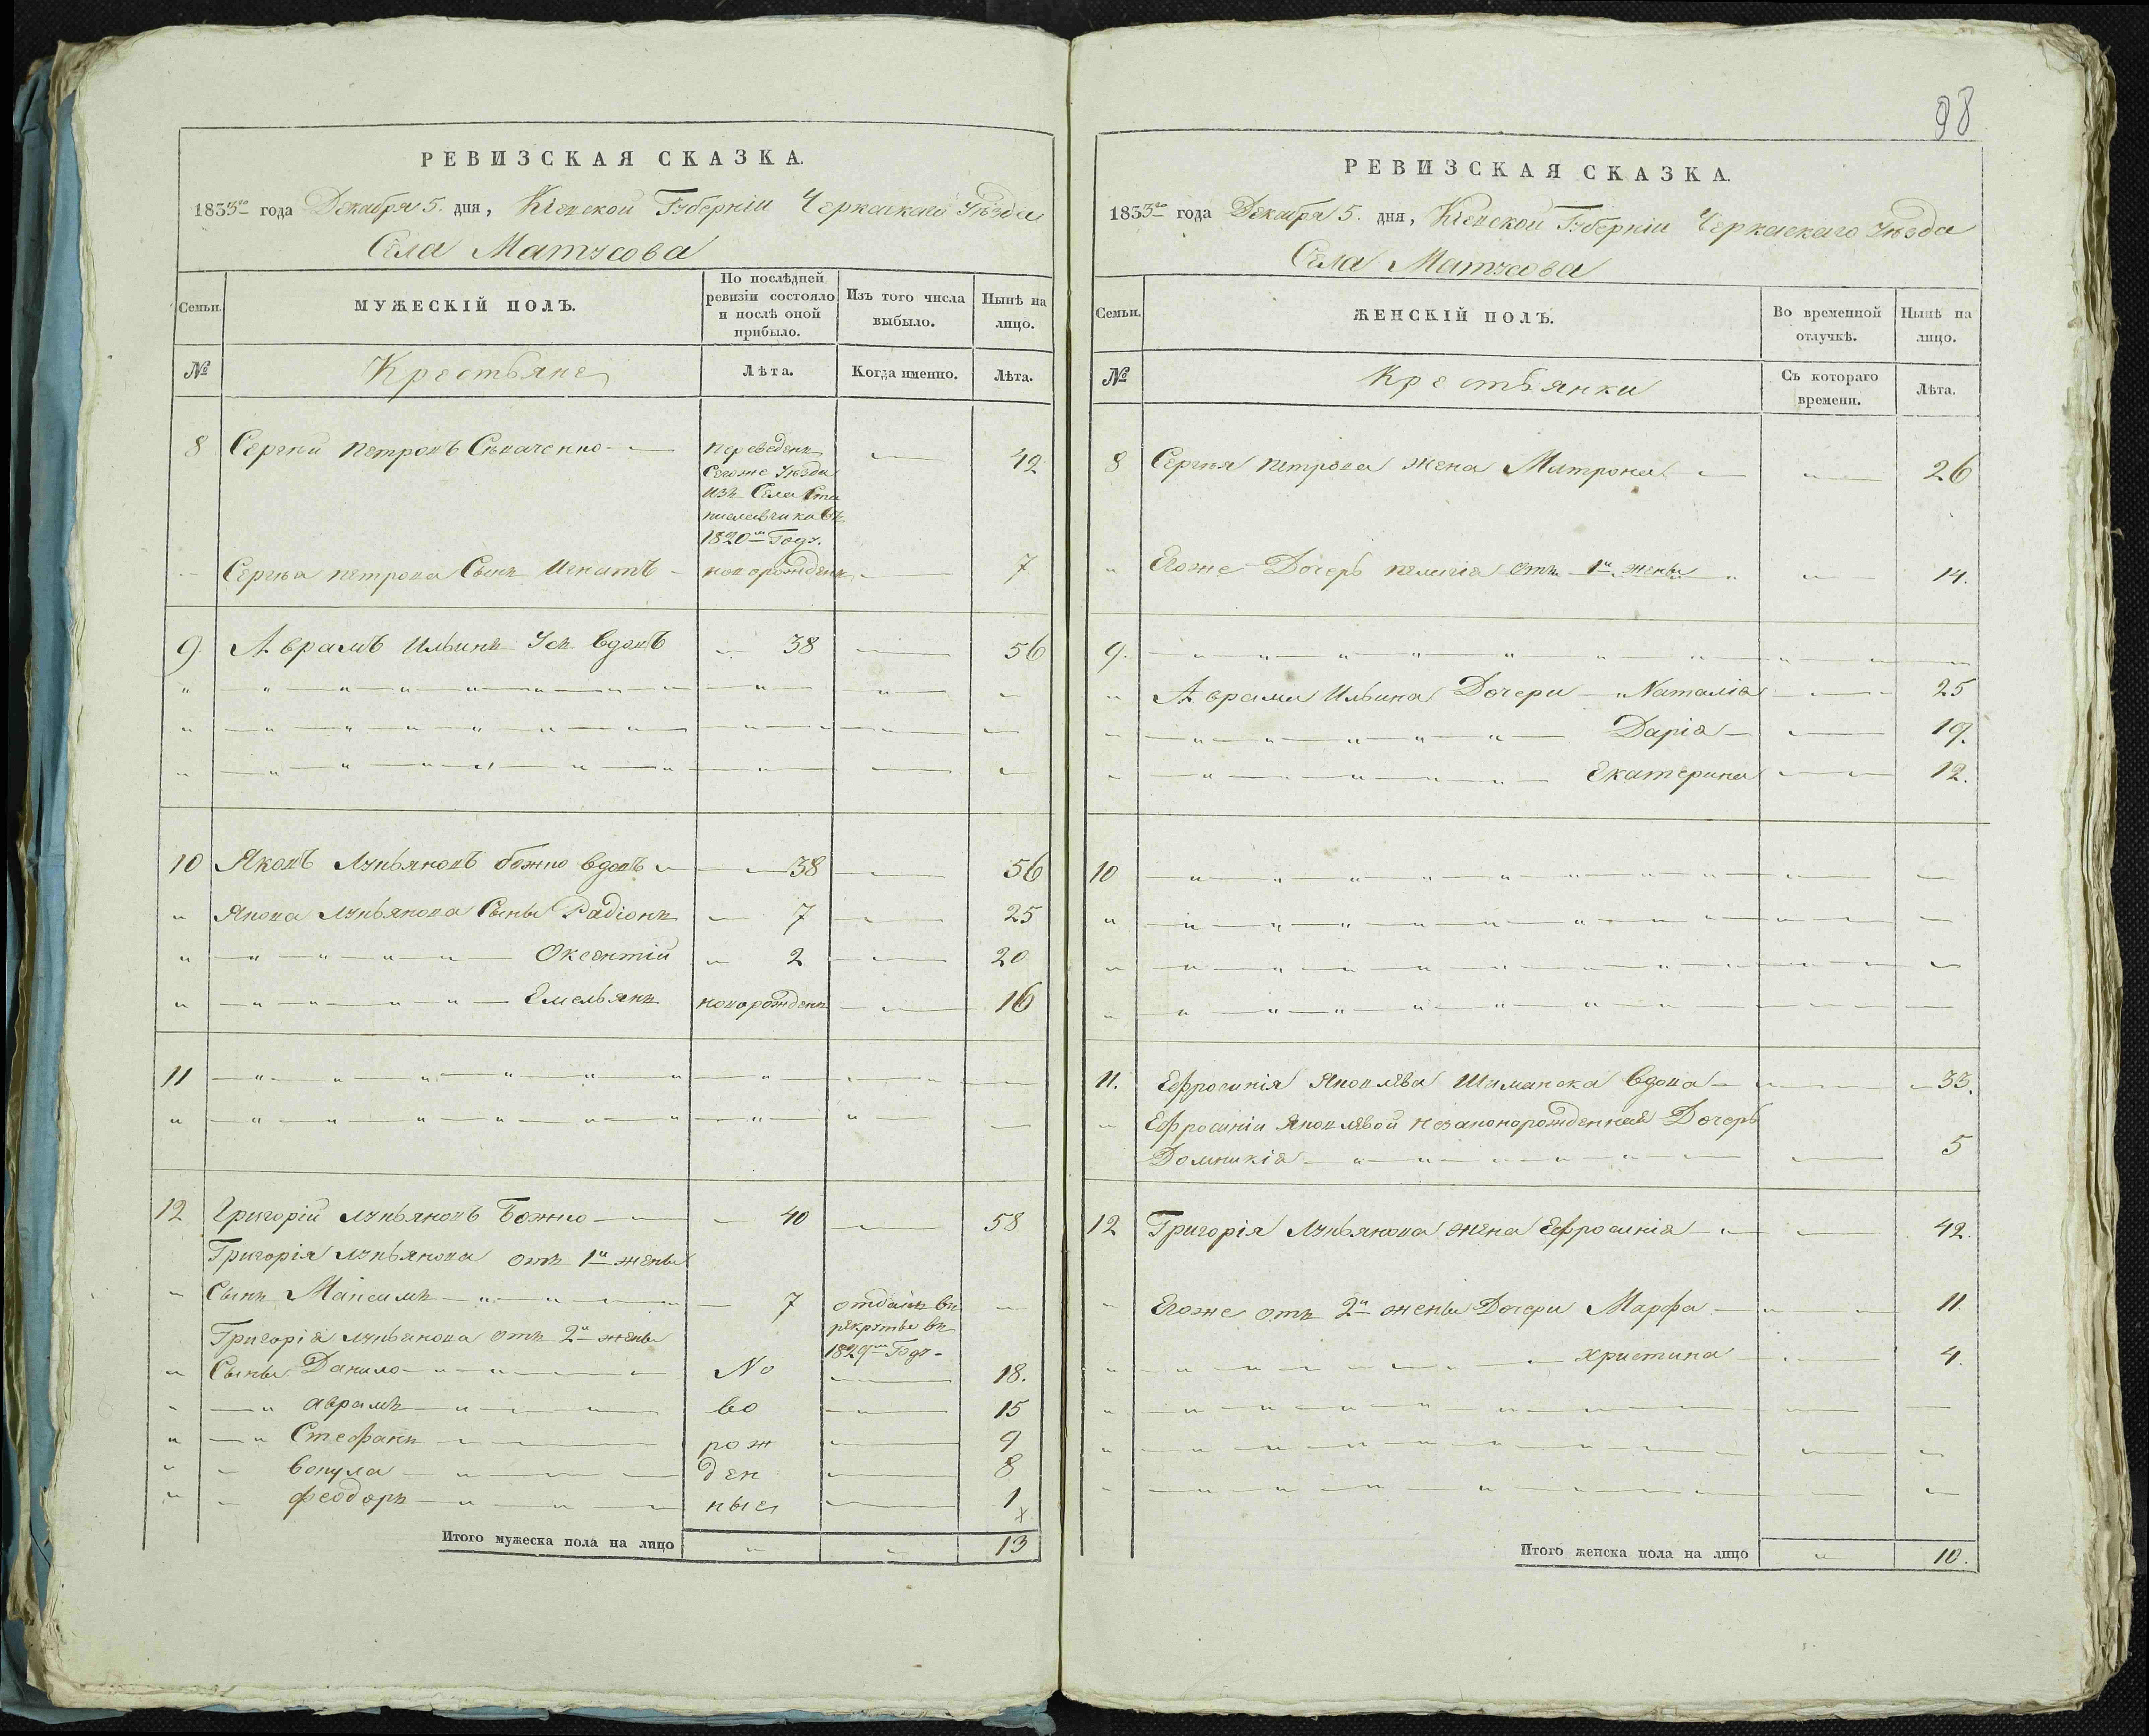 РЕВИЗСКАЯ СКАЗКА.
1833го года Декабря 5. дня, Кіевской Губерніи Черкаскаго Уѣзда
Села Матусова
Семьи. МУЖЕСКІЙ ПОЛЪ. По послѣдней ревизіи состояло и послѣ оной прибыло. Изъ того числа выбыло. Нынѣ на лицо.
№ Крестьяне Лѣта. Когда именно. Лѣта.
8 Сергій Петровъ 42
переведенъ
Сегоже Уѣзда
изъ Села Ста
ниславчика въ
1820мъ Году.
Сергѣя Петрова Сынъ Игнатъ новорожденъ 7
9 Аврамъ Ильинъ Усъ вдовъ 38 56
10 Яковъ Лукьяновъ Божко вдовъ 38 56
Якова Лукьянова Сыны Радіонъ 7 25
Оксентій 2 20
Емельянъ новорожденъ 16
11
12 Григорій Лукьяновъ Божко 40 58
Григорія Лукьянова отъ 1й жены
Сынъ Максимъ 7 отданъ въ
рекруты въ
1829мъ Году
Григорія Лукьянова отъ 2й жены
Сыны Данило Но 18.
Аврамъ во 15
Стефанъ рож 9
Вакула ден 8
Феодоръ ные 1
х
Итого мужеска пола на лицо 13
98
РЕВИЗСКАЯ СКАЗКА.
1833го года Декабря 5. дня, Кіевской Губерніи Черкаскаго Уѣзда
Села Матусова
Семьи. ЖЕНСКІЙ ПОЛЪ. Во временной отлучкѣ. Нынѣ на лицо.
№ Крестьянки Съ котораго времени. Лѣта.
8 Сергѣя Петрова жена Матрона 26
Егоже Дочерь Пелагія отъ 1й жены 14.
9.
Аврама Ильина Дочери Наталія 25
Дарія 19.
Екатерина 12.
10
11. Ефросинія Яковлева Шиманска вдова 33.
Ефросиніи Яковлевой незаконорожденная Дочерь
Домникія 5
12 Григорія Лукьянова жена Ефросинія 42.
Егоже отъ 2й жены Дочери Марфа 11.
Христина 4.
Итого женска пола на лицо 10.